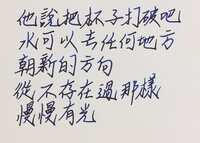 他說把杯子打破吧
水可以去任何地方
朝新的方向
從不存在過那樣
慢慢有光